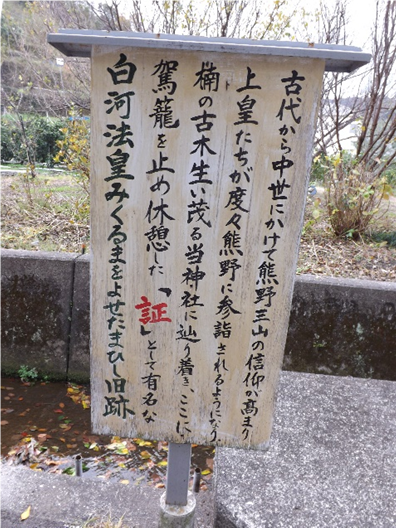 古代から中世にかけて熊野三山の信仰が高まり
上皇たちが度々熊野に参詣されるようになり、
楠の古木生い茂る当神社に辿り着き、ここに
駕籠を止め休憩した「証」として有名な
白河法皇みくるまをよせたまひし旧跡